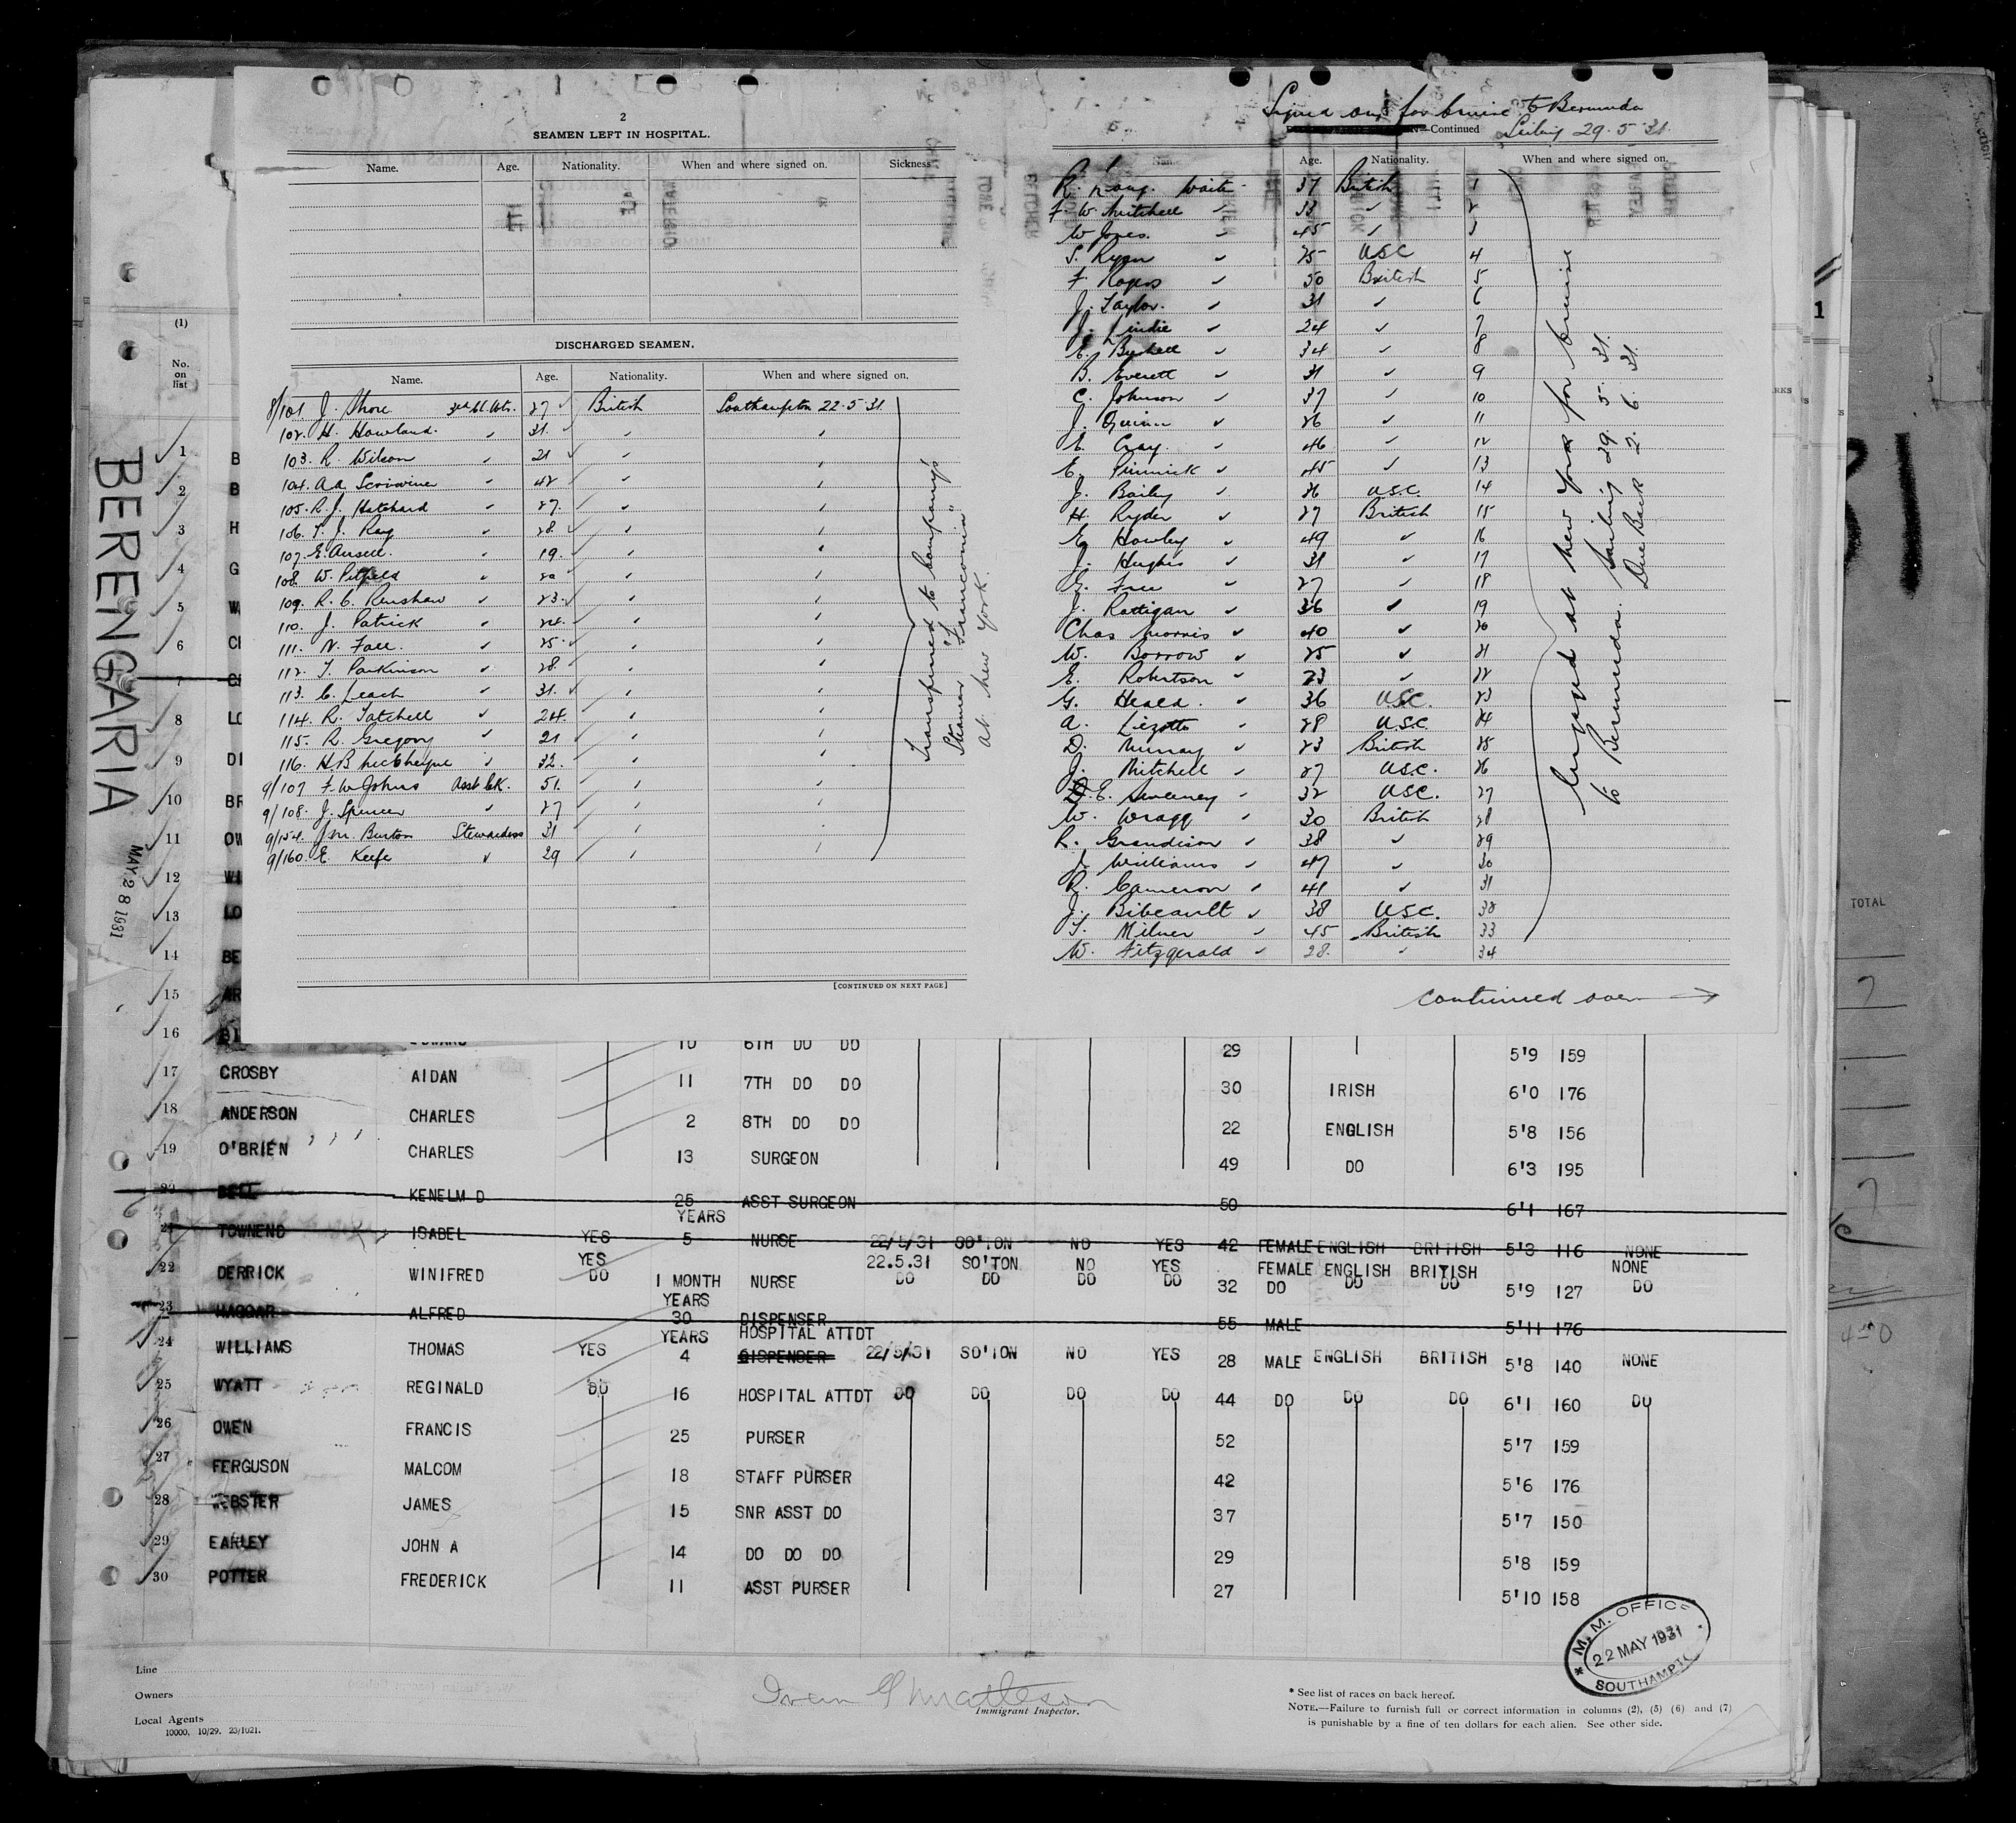 2
SEAMEN LEFT IN HOSPITAL.
Name. Age. Nationality. When and where signed on. Sickness
DISCHARGED SEAMEN.
Name. Age. Nationality. When and where signed on.
8/101 J. Shore 27 British Southampton 22.5.31.
102. H. Howland. 31.
103. R. Wilson 21
104. A.A. Scrivener 42
105. R.J. Hatchard 27.
106. T. J. Ray 28.
107. E. Ansell. 19.
108. W.
109. R. C. Renshaw 23.
110. J. Patrick 24.
111. N. Fall. 25.
112. T. Parkinson 28.
113. C. Leach 31.
114. R. Tatchell 24.
115. R. Gregory 21
116. H.B. 32.
9/107 F. W. Johns Asst Ck. 51.
9/108. J. Spencer 27
9/154. J.M. Burton Stewardess 31
9/160. E. Keefe 29
Transferred to Company's
Steamer "Franconia"
at New York.
[CONTINUED ON NEXT PAGE]
Signed on for Cruise to Bermuda
—Continued Sailing 29.5.31.
Age. Nationality. When and where signed on.
R. Waite 37 British 1
F. W. Mitchell 33 2
W. Jones. 45 3
S. Ryan 25 USC 4
F. Rogers 50 British 5
J. Taylor. 31 6
J. 24 7
E. 34 8
B. Everett 31 9
C. Johnson 37 10
J. Quinn 26 11
E. Cray. 46 12
E. Pinnick 45 13
J. Baily 36 U.S.C. 14
H. Ryder 27 British 15
E. Howley 49 16
J. Hughes 31 17
E. Free 27 18
J. Rattigan 36 19
Chas Morris 40 20
W. Borrow 25 21
E. Robertson 23 22
G. Heald. 36 USC. 23
A. Lizotte 28 U.S.C. 24
D. Murray 23 British 25
J. Mitchell 27 USC. 26
D.E. Sweeney 32 USC. 27
W. Wragg 30 British 28
R. Grandison 38 29
J. Williams 47 30
R. Cameron 41 31
J. Bibeault 38 USC. 32
T. Milner 45 British 33
W. Fitzgerald 28. 34
Engaged at New York for Cruise
to Bermuda. Sailing 29. 5. 31.
Due Back 2. 6. 31.
continued over →
BERENGARIA
MAY 28 1931
(1)
No.
on
list
1 B
2 B
3 H
4 G
5
6
7
8
9
10 BR
11 OW
12
13 LO
14 BE
15 AR
16 10 6TH DO DO 29 5'9 159
17 CROSBY AIDAN 11 7TH DO DO 30 IRISH 6'0 176
18 ANDERSON CHARLES 2 8TH DO DO 22 ENGLISH 5'8 156
19 O'BRIEN CHARLES 13 SURGEON 49 DO 6'3 195
20 BELL KENELM D 25 ASST SURGEON 50 6'1 167
YEARS
21 TOWNEND ISABEL YES 5 NURSE 22/5/31 SO'TON NO YES 42 FEMALE ENGLISH BRITISH 5'3 116 NONE
YES 22.5.31 SO'TON NO YES FEMALE ENGLISH BRITISH NONE
22 DERRICK WINIFRED DO 1 MONTH NURSE DO DO DO DO 32 DO DO DO 5'9 127 DO
YEARS
23 HAGGAR ALFRED 30 DISPENSER 55 MALE 5'11 176
YEARS HOSPITAL ATTDT
24 WILLIAMS THOMAS YES 4 DISPENSER 22/5/31 SO'TON NO YES 28 MALE ENGLISH BRITISH 5'8 140 NONE
25 WYATT REGINALD DO 16 HOSPITAL ATTDT DO DO DO DO 44 DO DO DO 6'1 160 DO
26 OWEN FRANCIS 25 PURSER 52 5'7 159
27 FERGUSON MALCOM 18 STAFF PURSER 42 5'6 176
28 WEBSTER JAMES 15 SNR ASST DO 37 5'7 150
29 EARLEY JOHN A 14 DO DO DO 29 5'8 159
30 POTTER FREDERICK 11 ASST PURSER 27 5'10 158
TOTAL
M.M. OFFICE
22 MAY 1931
SOUTHAMPTON
Line
Owners
Local Agents
10000, 10/29. 23/1021.
Immigrant Inspector.
* See list of races on back hereof.
NOTE.—Failure to furnish full or correct information in columns (2), (5) (6) and (7)
is punishable by a fine of ten dollars for each alien. See other side.